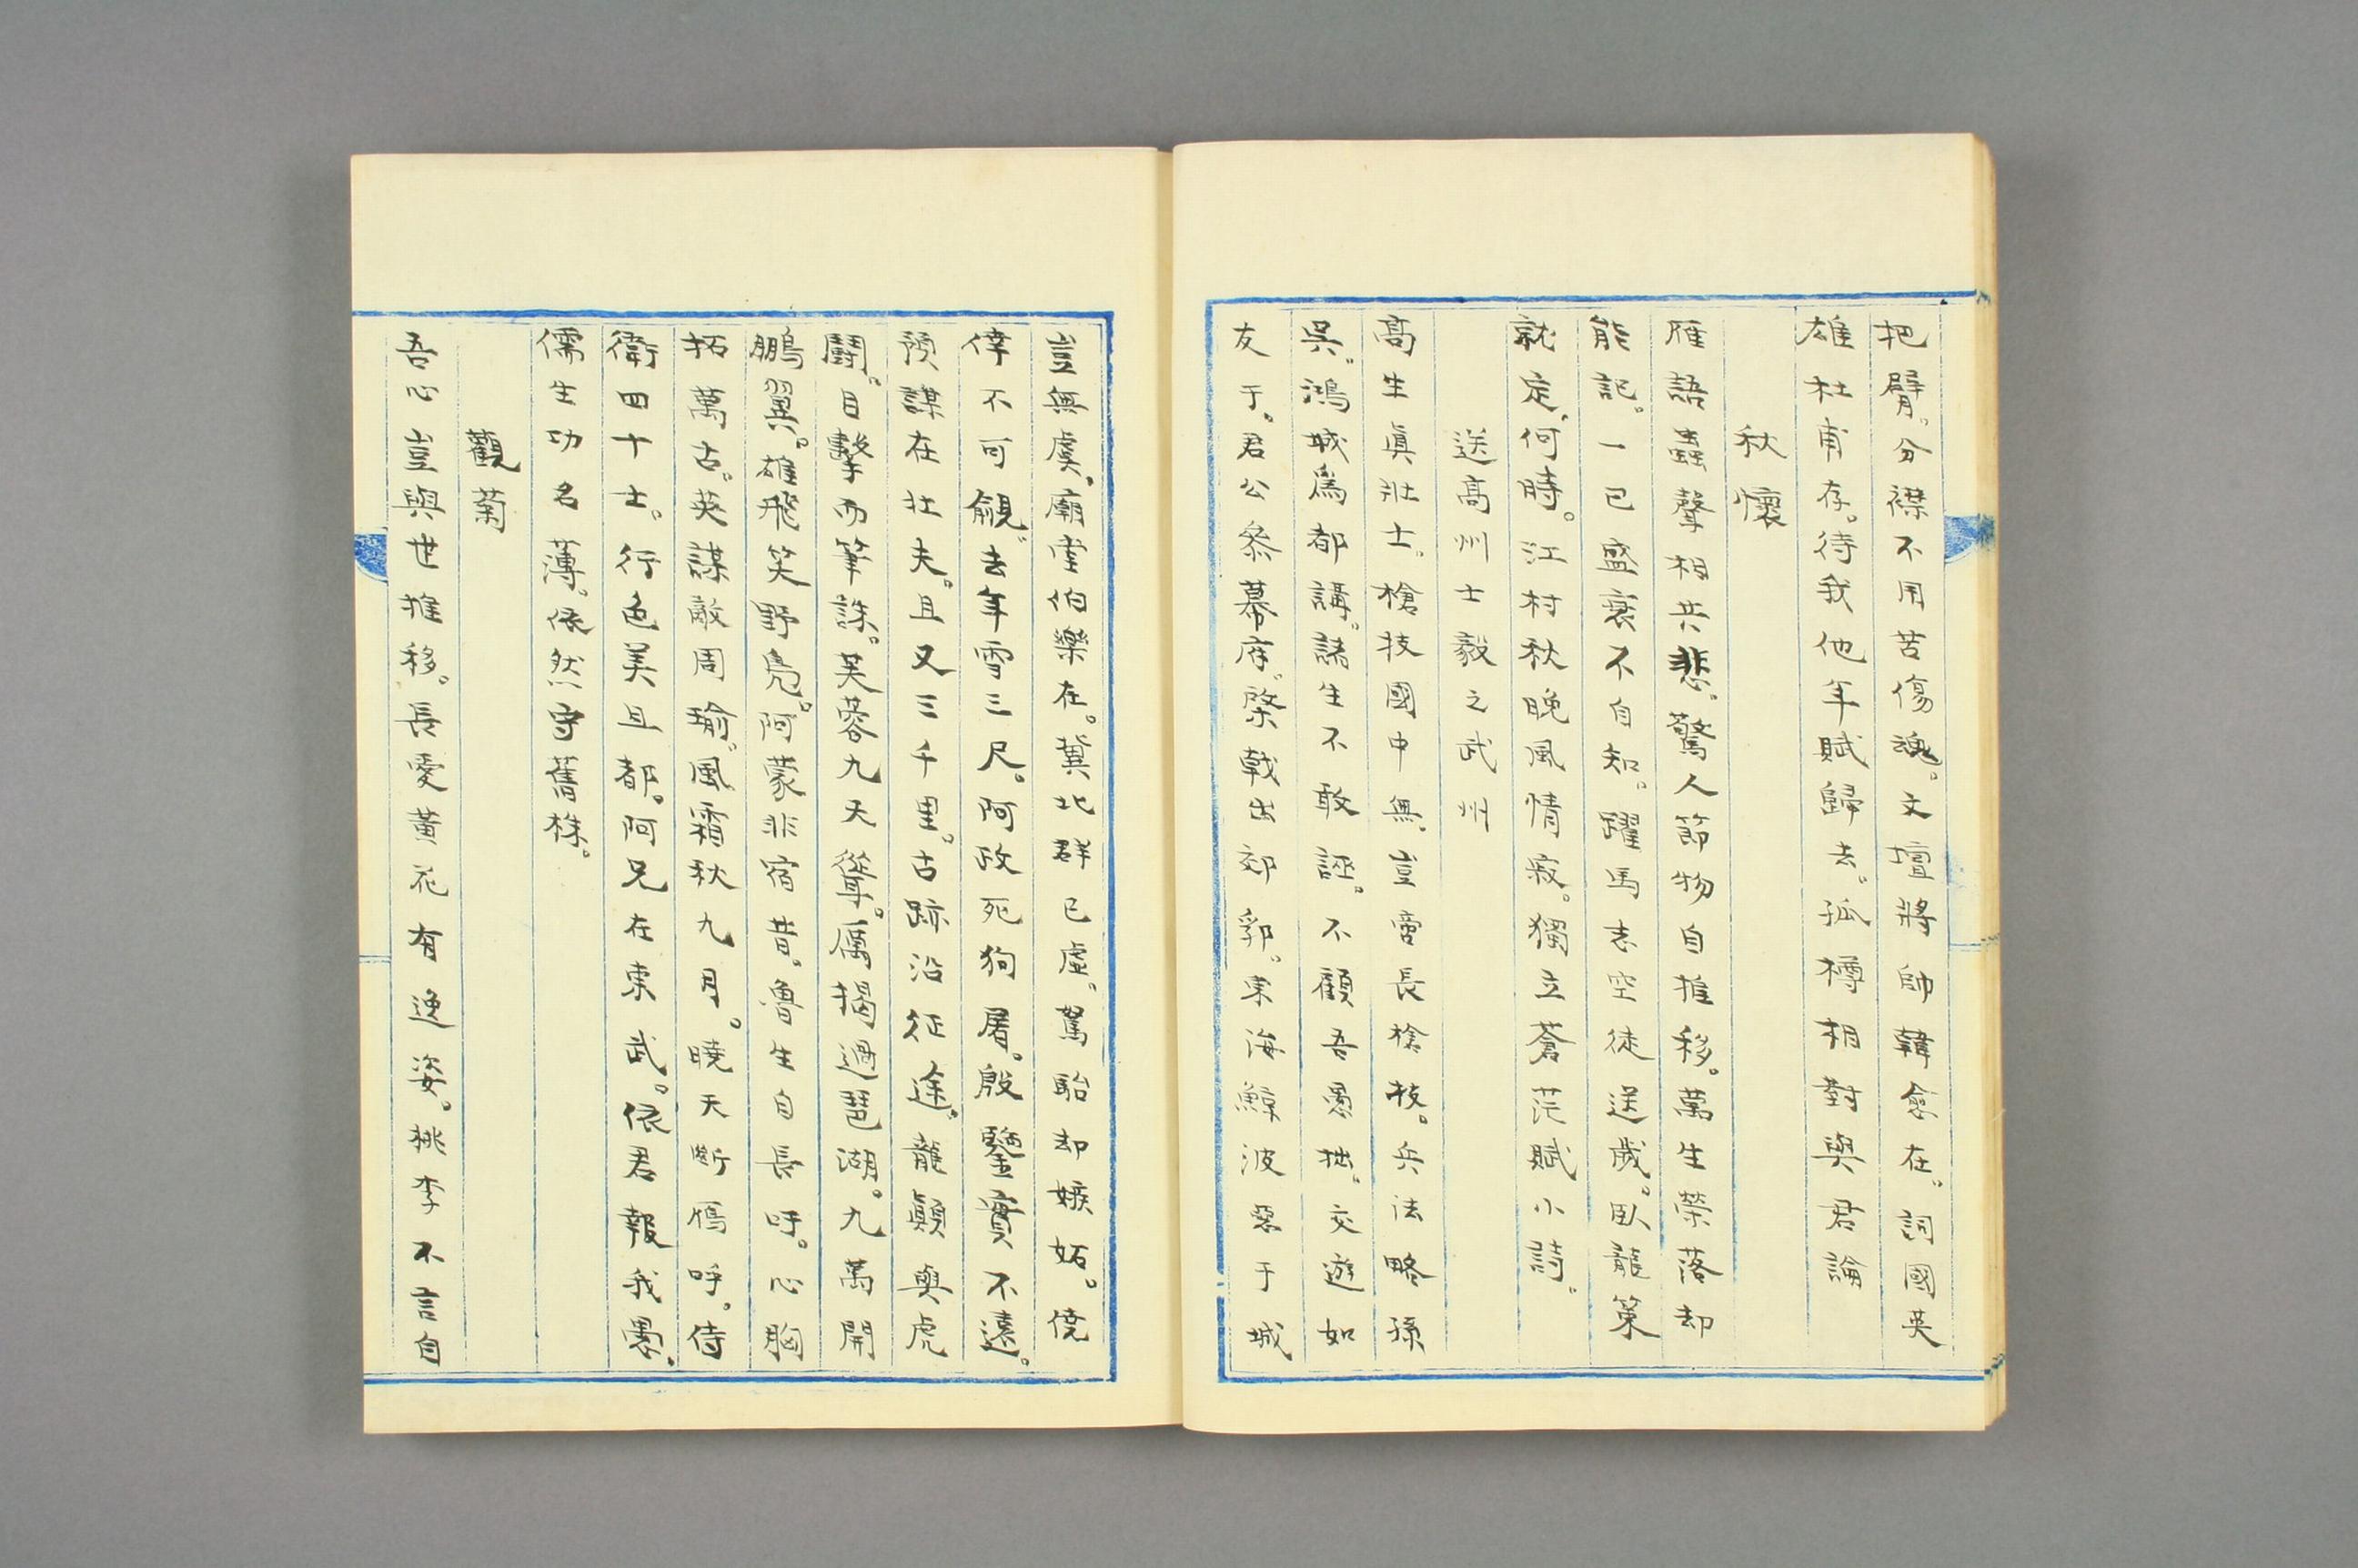 把臂。分襟不用苦傷魂。文壇將帥韓愈在。詞國英
雄杜甫存。待我他年賦歸去。孤樽相對與君論
秋懷
雁語蟲聲相共悲。驚人節物自推移。萬生榮落却
能記。一己盛衰不自知。躍馬志空徒送歲。臥龍策
就定何時。江村秋晚風情寂。獨立蒼茫賦小詩。
送高州士毅之武州
高生眞壯士。槍技國中無。豈啻長槍技。兵法略孫
吳。鴻城爲都講。諸生不敢誣。不顧吾愚拙。交遊如
友于。君公參幕府。棨戟出郊郭。東海鯨波惡。于城
豈無虞。廟堂伯樂在。冀北群已虛。駑駘却嫉妬。僥
倖不可覦。去年雪三尺。阿政死狗屠。殷鑒實不遠。
預謀在壯夫。且又三千里。古跡沿征途。龍顚與虎
鬪。目擊而筆誅。芙蓉九天聳。厲揭過琶湖。九萬開
鵬翼。雄飛笑野鳧。阿蒙非宿昔。魯生自長呼。心胸
拓萬古。英謀敵周瑜。風霜秋九月。曉天斷鴈呼。侍
衛四十士。行色美且都。阿兄在東武。依君報我愚。
儒生功名薄。依然守舊株。
觀菊
吾心豈與世推移。長愛黃花有逸姿。桃李不言自